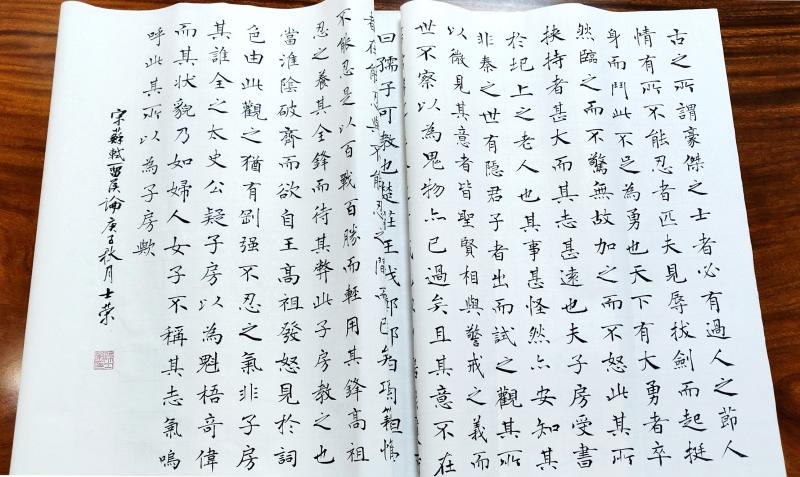 古之所謂豪傑之士者必有過人之節人
情有所不能忍者匹夫見辱拔劍而起挺
身而鬥此不足為勇也天下有大勇者卒
然臨之而不驚無故加之而不怒此其所
挾持者甚大而其志甚遠也夫子房受書
於圯上之老人也其事甚怪然亦安知其
非秦之世有隱君子者出而試之觀其所
以微見其意者皆聖賢相與警戒之義而
世不察以為鬼物亦已過矣且其意不在
曰孺子可教也楚莊王伐鄭鄭
者在能忍與不能忍之間而已矣項籍惟
不能忍是以百戰百勝而輕用其鋒高祖
忍之養其全鋒而待其弊此子房教之也
當淮陰破齊而欲自王高祖發怒見於詞
色由此觀之猶有剛强不忍之氣非子房
其誰全之太史公疑子房以為魁梧奇偉
而其狀貌乃如婦人女子不稱其志氣嗚
呼此其所以為子房歟
宋蘇軾留侯論庚子秋月士荣